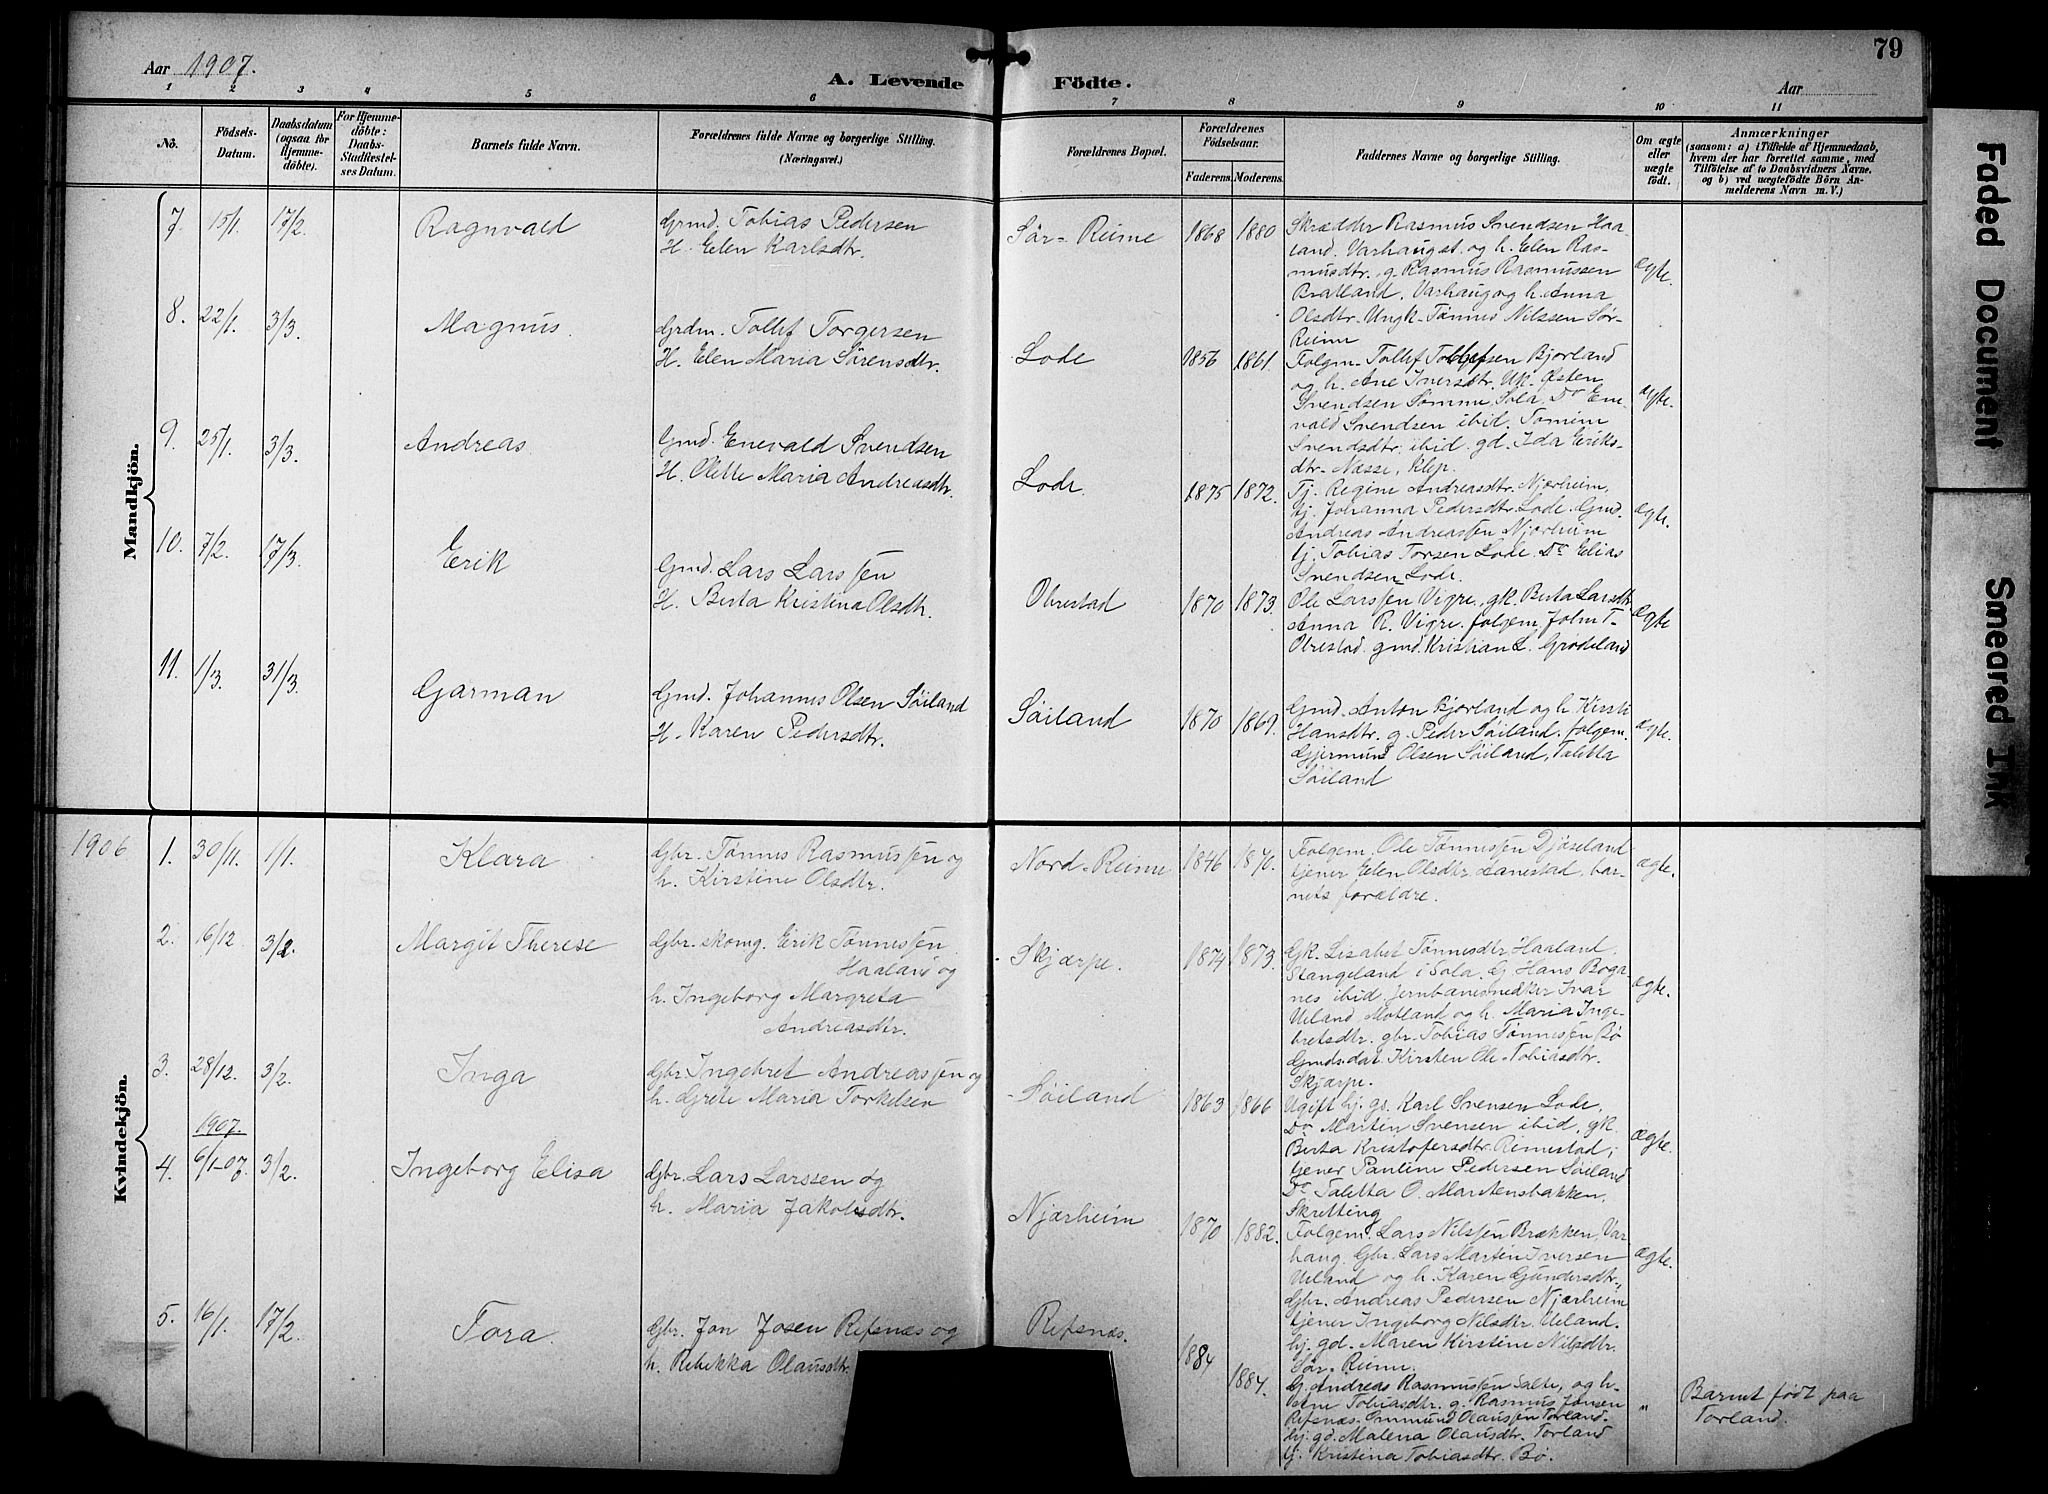 79
Aar 1907.
A. Levende Födte.
Aar
1 2 3 4 5 6 7 8 9 10 11
No.
Födsels-
Datum.
Daabsdatum
(ogsaa for
Hjemme-
döbte).
For Hjemme-
döbte:
Daabs-
Stadfæstel-
ses Datum.
Barnets fulde Navn.
Forældrenes fulde Navne og borgerlige Stilling.
(Næringsvei.)
Forældrenes Bopæl.
Forældrenes
Födselsaar.
Faderens. Moderens.
Faddernes Navne og borgerlige Stilling.
Om ægte
eller
uægte
födt.
Anmærkninger
(saasom: a) i Tilfælde af Hjemmedaab,
hvem der har forrettet samme, med
Tilföielse af to Daabsvidners Navne,
og b) ved uægtefödte Börn An-
melderens Navn m. V.)
Mandkjön.
7. 15/1. 17/2. Ragnvald
Grmd. Tobias Pedersen
H. Elen Karlsdtr.
Sør-Reime 1868 1880
Skrædder Rasmus Svendsen Haa-
land. Varhaugst. og h. Elen Ras-
musdtr. g. Rasmus Rasmussen
Bratland, Varhaug og h. Anna
Olsdtr. Ungk. Tønnes Nilssen Sør-
Reime
ægte.
8. 22/1. 3/3. Magnus.
Grdm. Tollef Torgersen
H. Elen Maria Sørensdtr.
Lode 1856 1861.
Folgm. Tollef Tollefsen Bjorland
og h. Ane Iversdtr. Uk. Østen
Svendsen Sømme, Sola. Do Ene-
vald Svendsen ibid. Tomine
Svendsdtr. ibid. gd. Ida Eriks-
dtr. Næsse, Klep.
ægte.
9. 25/1. 3/3. Andreas
Gmd. Enevald Svendsen
H. Olette Maria Andreasdtr.
Lode. 1875 1872.
Tj. Regine Andreasdtr. Njærheim,
tj. Johanna Pedersdtr. Lode. Gmd.
Andreas Andreassen Njærheim
tj. Tobias Torsen Lode. Do Elias
Svendsen Lode.
ægte.
10. 7/2. 17/3. Erik
Gmd. Lars Larssen
H. Berta Kristina Olsdtr.
Obrestad 1870 1873.
Ole Larssen Vigre, gk. Berta Larsdtr
Anna R. Vigre. folgem. John T.
Obrestad. gmd. Kristian L. Grødeland
ægte
11. 1/3. 31/3. Garman
Gmd. Johannes Olsen Søiland
H. Karen Pedersdtr.
Søiland 1870 1869.
Gmd. Anton Bjorland og h. Kirsti
Hansdtr. g. Peder Søiland. folgem.
Gjermund Olsen Søiland, Taletta
Søiland
ægte.
Kvindekjön.
1906 1. 30/11. 1/1. Klara
Gbr. Tønnes Rasmussen og
h. Kirstine Olsdtr.
Nord-Reime 1846 1870.
Folgem. Ole Tønnessen Djøseland
tjener Elen Olsdtr. Lanestad, bar-
nets forældre.
ægte.
2. 16/12 3/2. Margit Therese
Gbr. skomg. Erik Tønnessen
Haaland og
h. Ingeborg Margreta
Andreasdtr.
Skjærpe. 1874 1873.
Gk. Lisabet Tønnesdtr. Haaland,
Stangeland i Sola. G. Hans Boga-
nes ibid. jernbanesnedker Ivar
Ueland Motland og h. Maria Inge-
bretsdtr. gbr. Tobias Tønnessen Bø
Gmds.dat. Kirsten Ole-Tobiasdtr.
Skjærpe.
ægte.
3. 28/12. 3/2. Inga
Gbr. Ingebret Andreassen og
h. Grete Maria Torkelsen
Søiland 1863 1866
Ugift hj. gs. Karl Svensen Lode,
Do Marten Svensen ibid, gk.
Berta Kristofersdtr. Rimestad,
tjener Pauline Pedersen Søiland
Do Taletta O. Martensbakken,
Skretting
ægte.
1907.
4. 6/1-07. 3/2. Ingeborg Elisa
Gbr. Lars Larssen og
h. Maria Jakobsdtr.
Njærheim 1870 1882.
Folgem. Lars Nilssen Brækken, Var-
haug. Gbr. Lars Marten Iversen
Ueland og h. Karen Gundersdtr.,
Gbr. Andreas Pedersen Njærheim
tjener Ingeborg Nilsdtr. Ueland.
hj. gd. Maren Kirstine Nilsdtr.
Sør-Reime.
ægte.
5. 16/1. 17/2. Tora.
Gbr. Jon Josen Refsnæs og
h. Rebekka Olausdtr.
Refsnæs. 1884 1884.
G. Andreas Rasmussen Salte, og h.
Ane Tobiasdtr. g. Rasmus Jonsen
Refsnæs. Ommund Olaussen Torland.
hj. gd. Malena Olausdtr. Torland
tj. Kristina Tobiasdtr. Bø.
"
Barnet født paa
Torland.
Faded Document
Smeared Ink